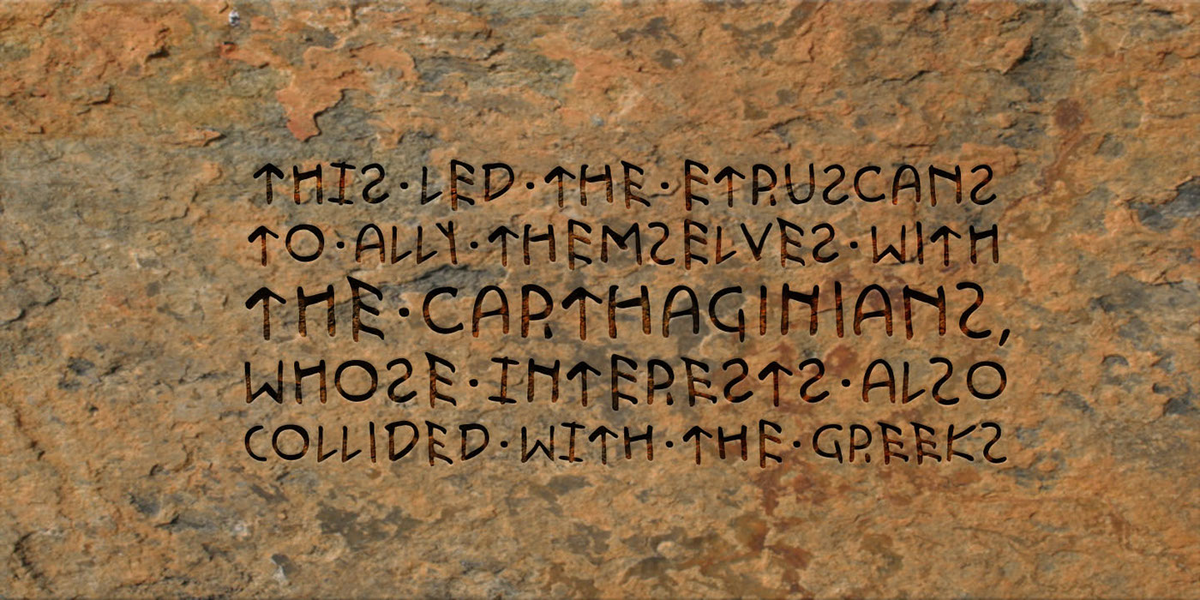 THIS·LED·THE·ETRUSCANS
TO·ALLY·THEMSELVES·WITH
THE·CARTHAGINIANS,
WHOSE·INTERESTS·ALSO
COLLIDED·WITH·THE·GREEKS